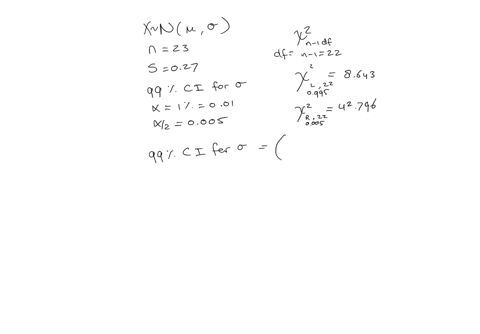 X~N(μ, σ)
n = 23
S = 0.27
99% CI for σ
α = 1% = 0.01
α/2 = 0.005
χ² n-1 df
df = n-1 = 22
χ² L, 22 0.995 = 8.643
χ² R, 22 0.005 = 42.796
99% CI for σ = (